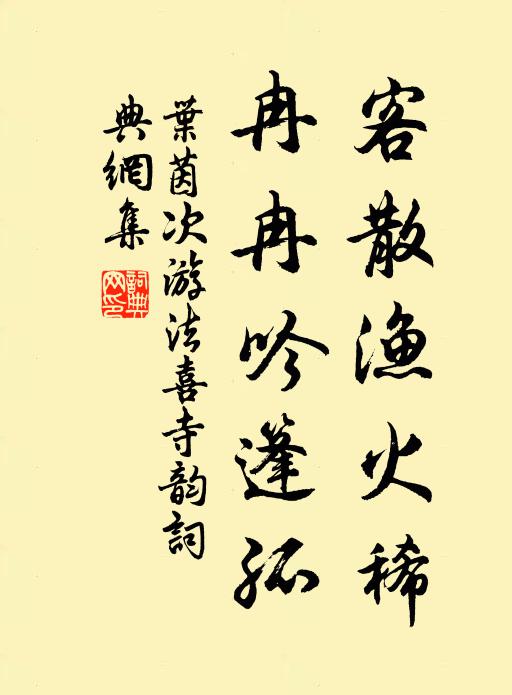 客散漁火稀
冉冉吟蓬孤
葉茵次游法喜寺韵詞
典網集
詞典網印